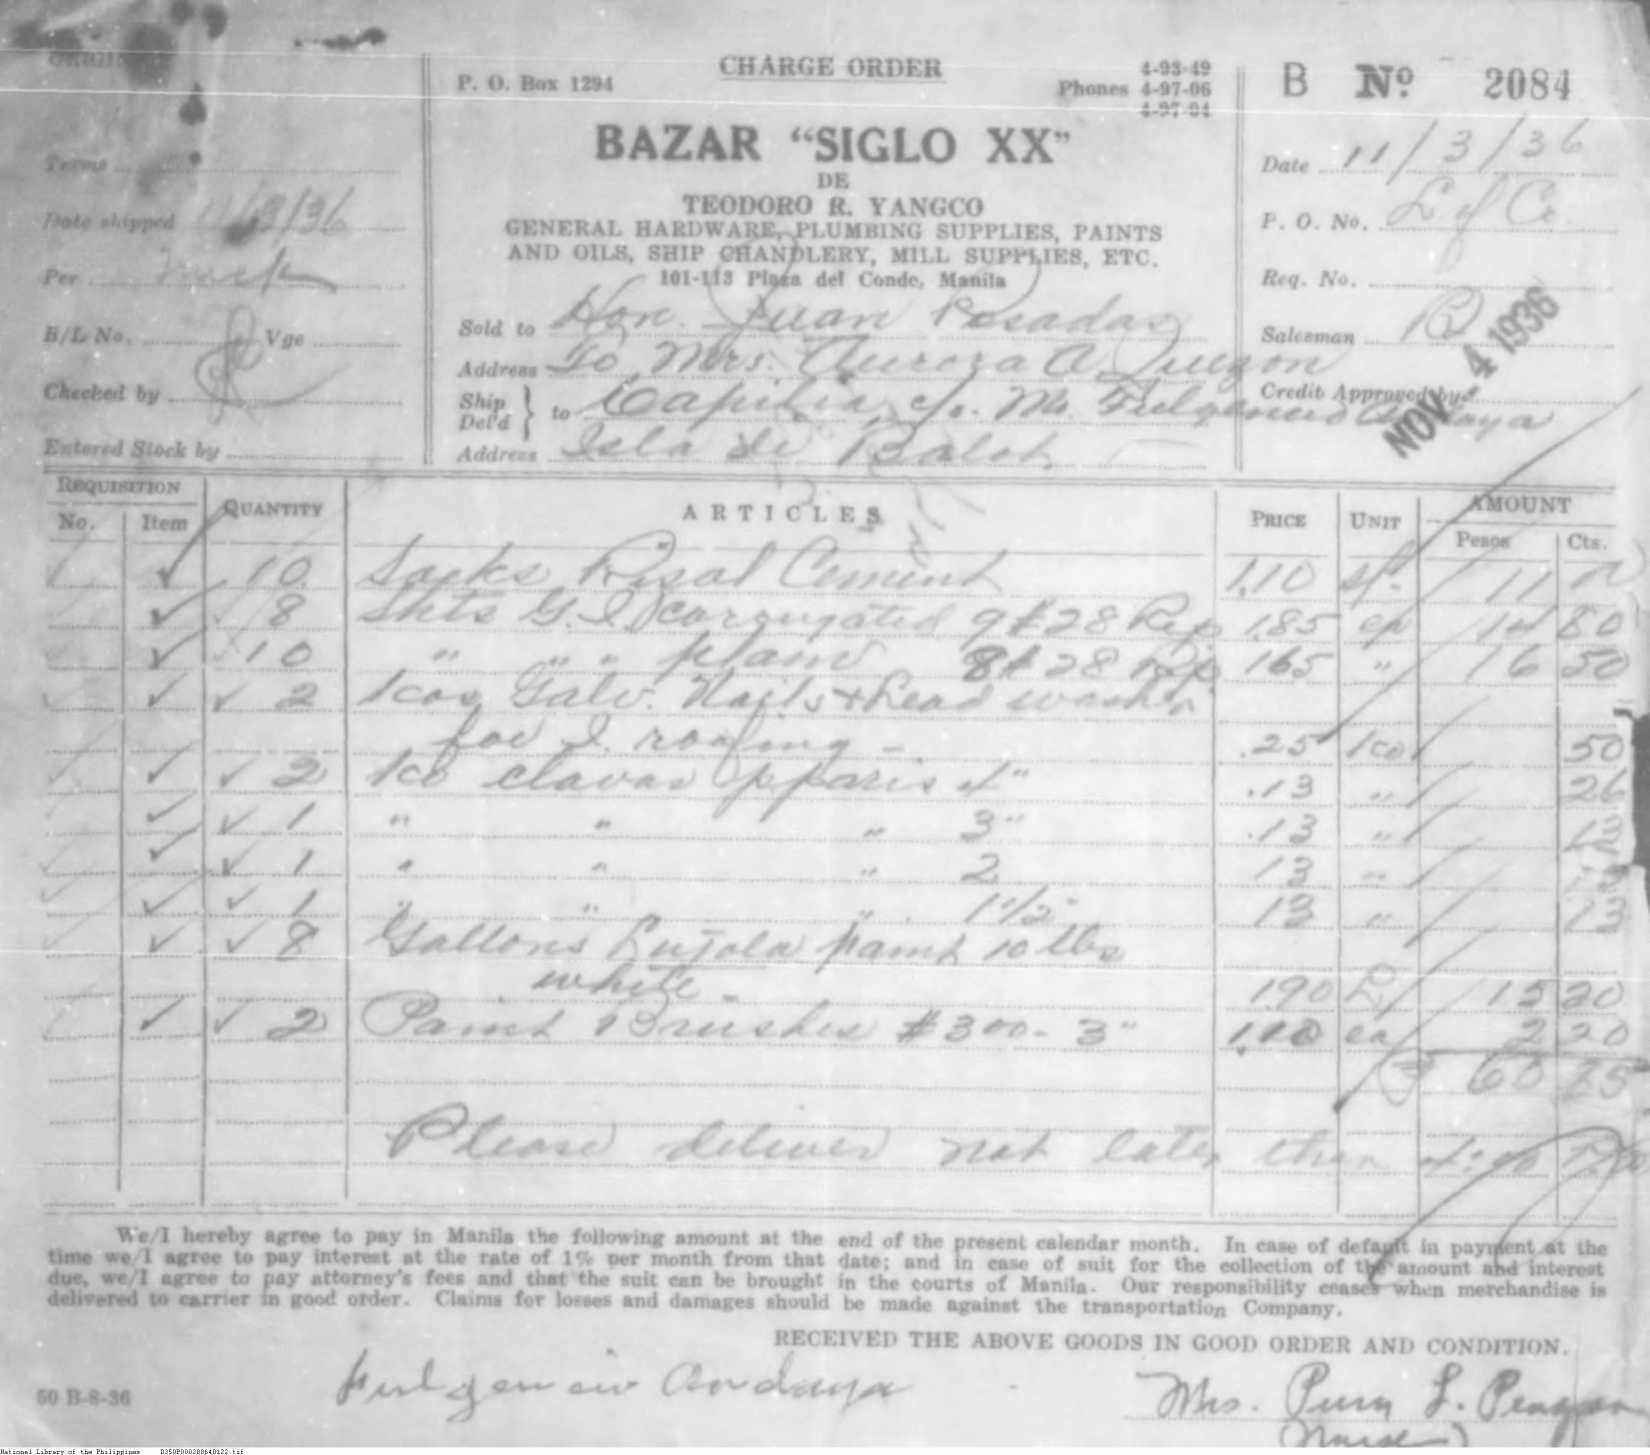 ORIGINAL
CHARGE ORDER
P. O. Box 1294
Phones 4-93-49
4-97-06
4-97-04
B No. 2084
BAZAR "SIGLO XX"
DE
TEODORO R. YANGCO
GENERAL HARDWARE, PLUMBING SUPPLIES, PAINTS
AND OILS, SHIP CHANDLERY, MILL SUPPLIES, ETC.
101-113 Plaza del Conde, Manila
Terms
Date shipped 11/3/36
Per Truck
B/L No. Vge
Checked by
Entered Stock by
Sold to Hon. Juan Posadas
Address To Mrs. Aurora A. Quezon
Ship Del'd } to Capilla, c/o. Mr. Fulgencio
Address Isla de Balot
Date 11/3/36
P. O. No. L of Co.
Req. No.
Salesman
Credit Approved by
NOV 4 1936
REQUISITION QUANTITY ARTICLES PRICE UNIT AMOUNT
No. Item Pesos Cts.
10 Sacks Rizal Cement 1.10 11
8 Shts G. I. Corrugated 9 # 28 1.85 14 80
10 " " " plain 8 # 28 1.65 " 16 50
2 Kos Galv. Nails + Lead washer
for I. roofing - .25 Ko 50
2 Ko clavos p paris 4" .13 " 26
1 " " " 3" .13 " 13
1 " " " 2 13 " 13
1 " " " 1 1/2" 13 " 13
8 Gallons paint 10 lbs
white - 1.90 15 20
2 Paint Brushes #300 - 3" 1.10 ea 2 20
60 85
Please deliver not later than
We/I hereby agree to pay in Manila the following amount at the end of the present calendar month. In case of default in payment at the
time we/I agree to pay interest at the rate of 1% per month from that date; and in case of suit for the collection of the amount and interest
due, we/I agree to pay attorney's fees and that the suit can be brought in the courts of Manila. Our responsibility ceases when merchandise is
delivered to carrier in good order. Claims for losses and damages should be made against the transportation Company.
RECEIVED THE ABOVE GOODS IN GOOD ORDER AND CONDITION.
Fulgencio
Mrs. Pura L.
50 B-8-36
National Library of the Philippines